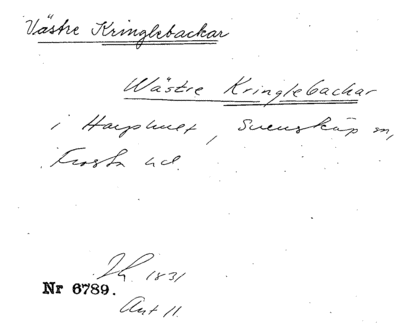 Västre Kringlebackar
Wästre Kringlebackar
i Harphult, Svensköp sn,
Frosta hd.
1831
Nr 6789.
Akt 11.